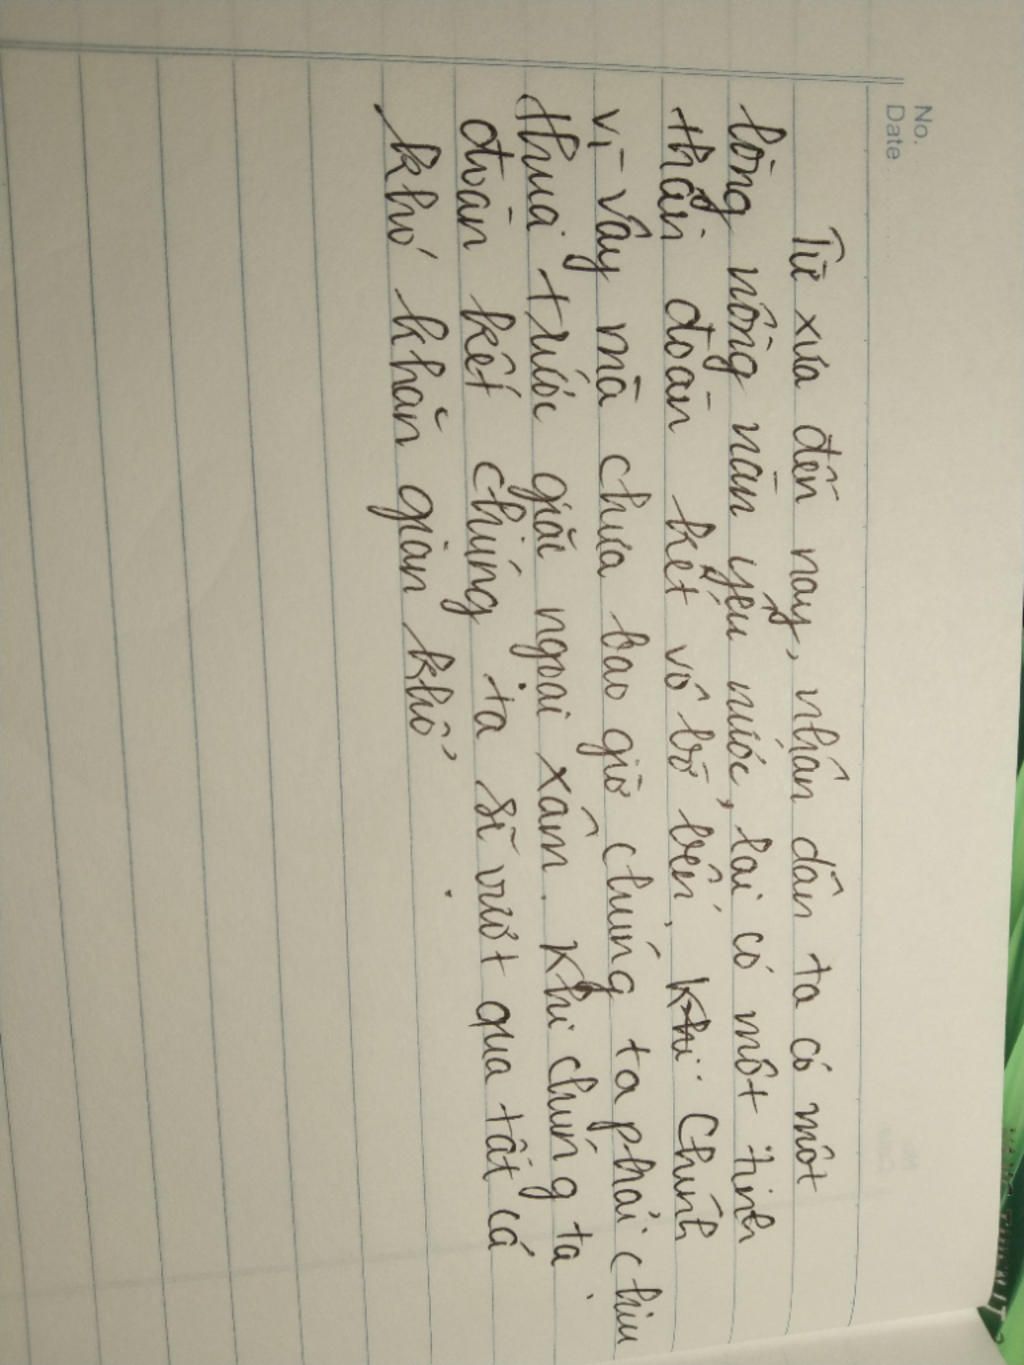 No.
Date
Từ xưa đến nay, nhân dân ta có một
lòng nồng nàn yêu nước, lại có một tinh
thần đoàn kết vô bờ bến. Khi Chính
vì vậy mà chưa bao giờ chúng ta phải chịu
thua trước giặc ngoại xâm. Khi chúng ta
đoàn kết chúng ta sẽ vượt qua tất cả
khó khăn gian khổ